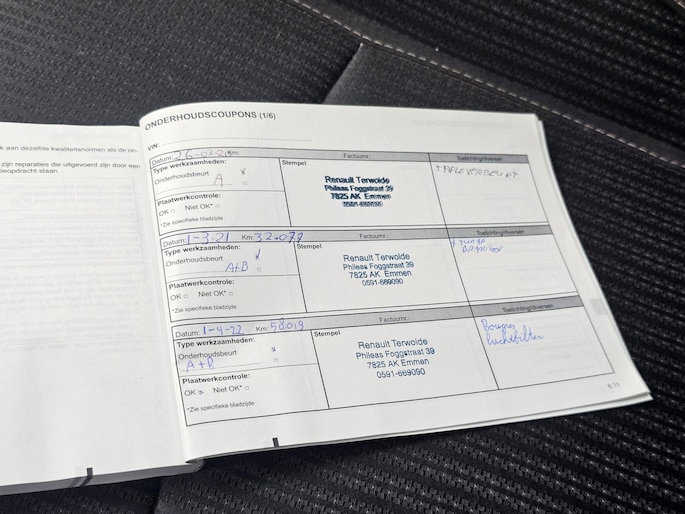 k aan dezelfde kwaliteitsnormen als de on-
zijn reparaties die uitgevoerd zijn door een
ieopdracht staan.
ONDERHOUDSCOUPONS (1/6)
VIN:
Datum: Km: Factuurnr.: Toelichting/diversen
Type werkzaamheden:
Onderhoudsbeurt
A
Plaatwerkcontrole:
OK □ Niet OK* □
*Zie specifieke bladzijde
Stempel
Renault Terwolde
Phileas Foggstraat 39
7825 AK Emmen
0591-669090
Datum: 1-3-21 Km: 32.079 Factuurnr.: Toelichting/diversen
Type werkzaamheden:
Onderhoudsbeurt
A+B
Plaatwerkcontrole:
OK □ Niet OK* □
*Zie specifieke bladzijde
Stempel
Renault Terwolde
Phileas Foggstraat 39
7825 AK Emmen
0591-669090
Datum: 1-4-22 Km: 58019 Factuurnr.: Toelichting/diversen
Type werkzaamheden:
Onderhoudsbeurt
A+B
Plaatwerkcontrole:
OK Niet OK* □
*Zie specifieke bladzijde
Stempel
Renault Terwolde
Phileas Foggstraat 39
7825 AK Emmen
0591-669090
Bougies
luchtfilter
6.11